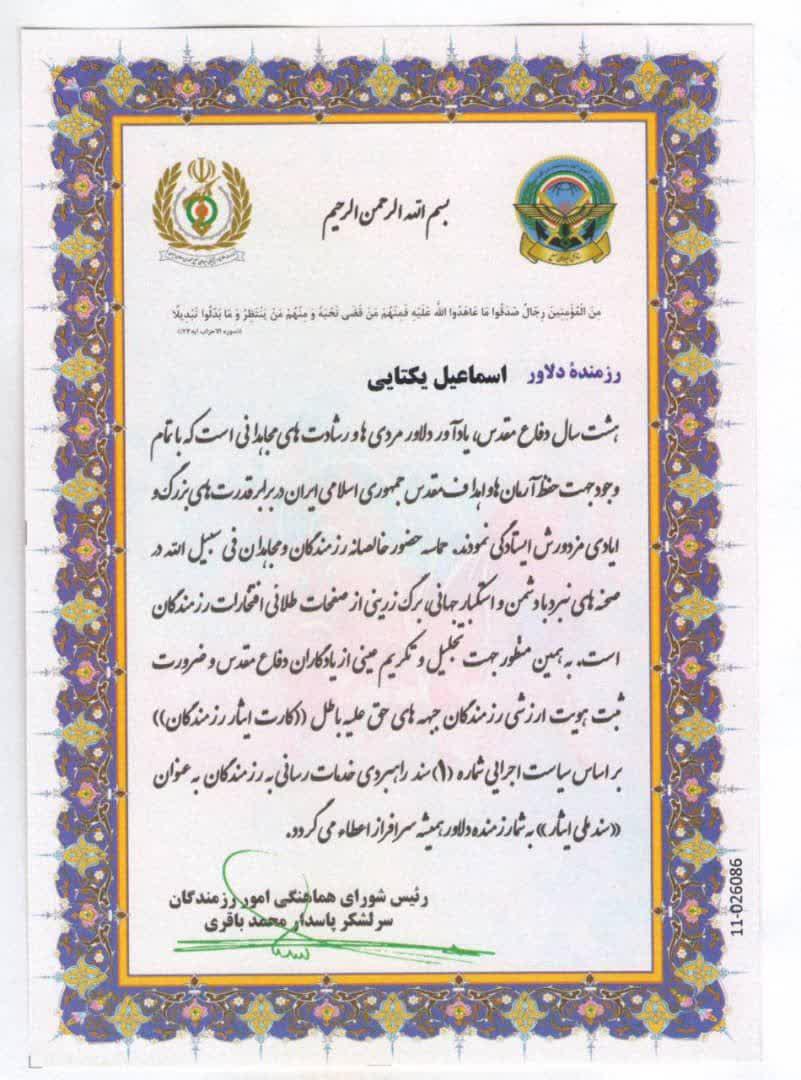 بسم الله الرحمن الرحیم
مِنَ الْمُؤْمِنِينَ رِجَالٌ صَدَقُوا مَا عَاهَدُوا اللَّهَ عَلَيْهِ فَمِنْهُمْ مَنْ قَضَى نَحْبَهُ وَ مِنْهُمْ مَنْ يَنْتَظِرُ وَ مَا بَدَّلُوا تَبْدِيلًا
(سوره الاحزاب آیه ۲۳)
رزمندهٔ دلاور اسماعیل یکتایی
هشت سال دفاع مقدس، یادآور دلاور مردی ها و رشادت های مجاهدانی است که با تمام
وجود جهت حفظ آرمان ها و اهداف مقدس جمهوری اسلامی ایران در برابر قدرت های بزرگ و
ایادی مزدورش ایستادگی نمودند. حماسه حضور خالصانه رزمندگان و مجاهدان فی سبیل الله در
صحنه های نبرد با دشمن و استکبار جهانی، برگ زرینی از صفحات طلائی افتخارات رزمندگان
است. به همین منظور جهت تجلیل و تکریم عینی از یادگاران دفاع مقدس و ضرورت
ثبت هویت ارزشی رزمندگان جبهه های حق علیه باطل ((کارت ایثار رزمندگان))
بر اساس سیاست اجرایی شماره (۱) سند راهبردی خدمات رسانی به رزمندگان به عنوان
«سند ملی ایثار» به شما رزمنده دلاور همیشه سرافراز اعطاء می گردد.
رئیس شورای هماهنگی امور رزمندگان
سرلشکر پاسدار محمد باقری
11-026086